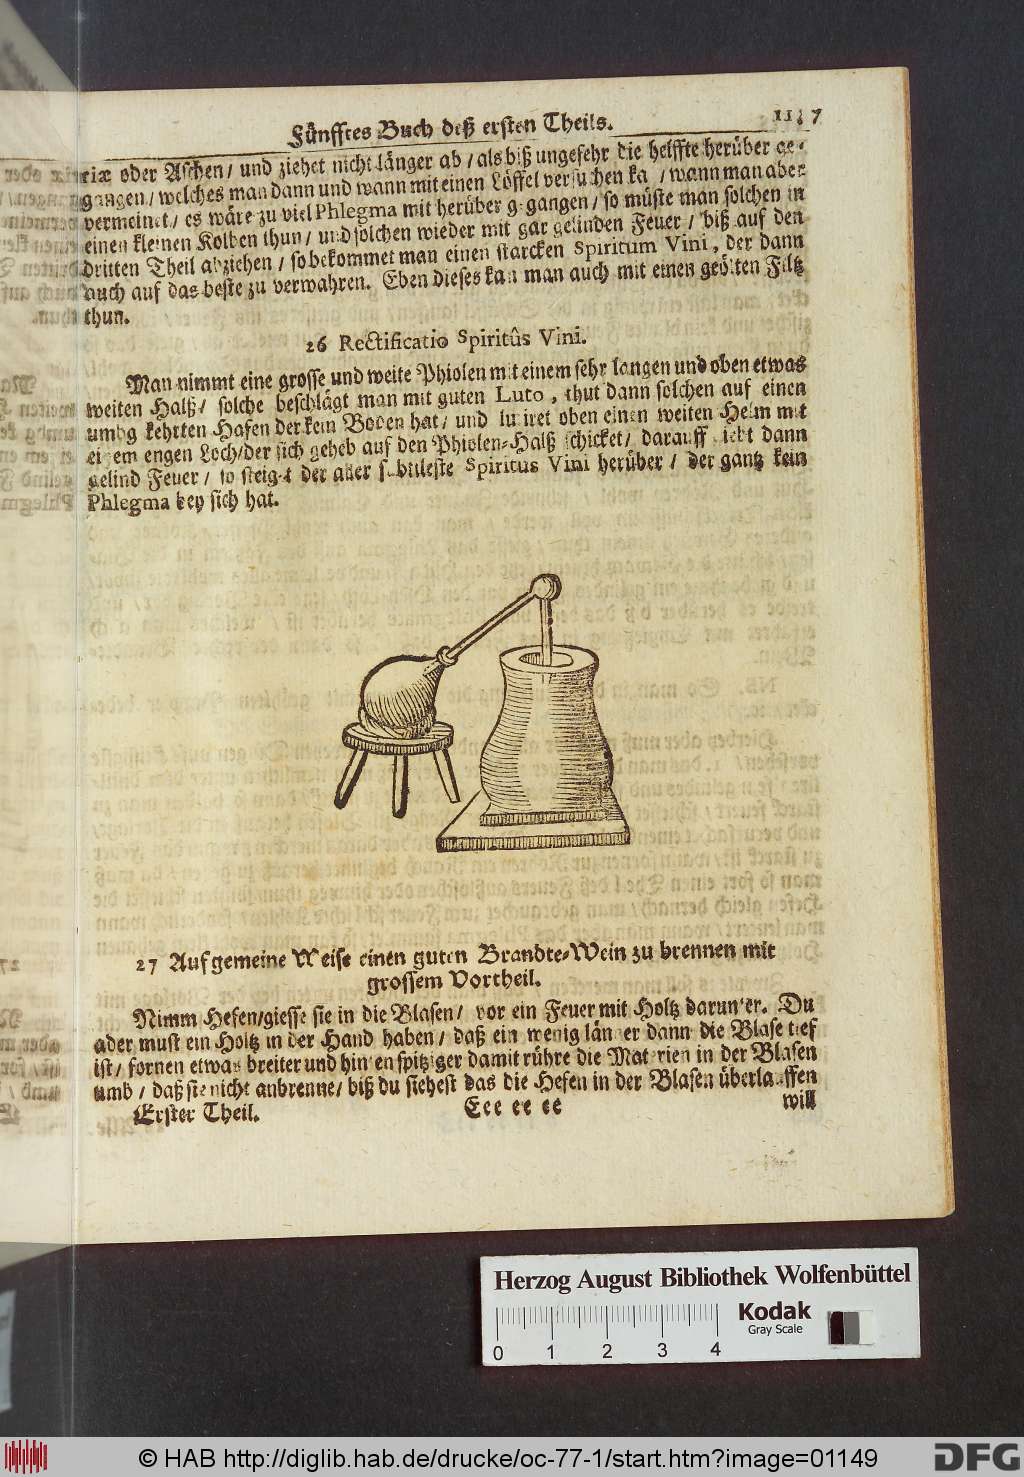 Fünfftes Buch deß ersten Theils. 11
riæ oder Aschen / und ziehet nicht länger ab / als biß ungefehr die helffte herüber ge-
gangen / welches man dann und wann mit einen Löffel versuchen ka / wann man aber
vermeinet / es wäre zu viel Phlegma mit herüber gegangen / so müste man solchen in
einen kleinen Kolben thun / und solchen wieder mit gar gelinden Feuer / biß auf den
dritten Theil abziehen / so bekommet man einen starcken Spiritum Vini, der dann
auch auf das beste zu verwahren. Eben dieses kan man auch mit einen geölten Filtz
thun.
26 Rectificatio Spiritûs Vini.
Man nimmt eine grosse und weite Phiolen mit einem sehr langen und oben etwas
weiten Halß / solche beschlägt man mit guten Luto, thut dann solchen auf einen
umbg kehrten Hafen der kein Boden hat / und lu iret oben einen weiten Helm mit
ei em engen Loch / der sich geheb auf den Phiolen-Halß schicket / darauff iebt dann
gelind Feuer / so steiget der aller subtileste Spiritus Vini herüber / der gantz kein
Phlegma bey sich hat.
27 Auf gemeine Weise einen guten Brandte-Wein zu brennen mit
grossem Vortheil.
Nimm Hefen / giesse sie in die Blasen / vor ein Feuer mit Holtz darunter. Du
ader must ein Holtz in der Hand haben / daß ein wenig län er dann die Blase tief
ist / fornen etwas breiter und hinten spitziger damit rühre die Materien in der Blasen
umb / daß sie nicht anbrenne / biß du siehest das die Hefen in der Blasen überla ffen
Erster Theil. Eee ee ee will
Herzog August Bibliothek Wolfenbüttel
Kodak
Gray Scale
0 1 2 3 4
© HAB http://diglib.hab.de/drucke/oc-77-1/start.htm?image=01149
DFG